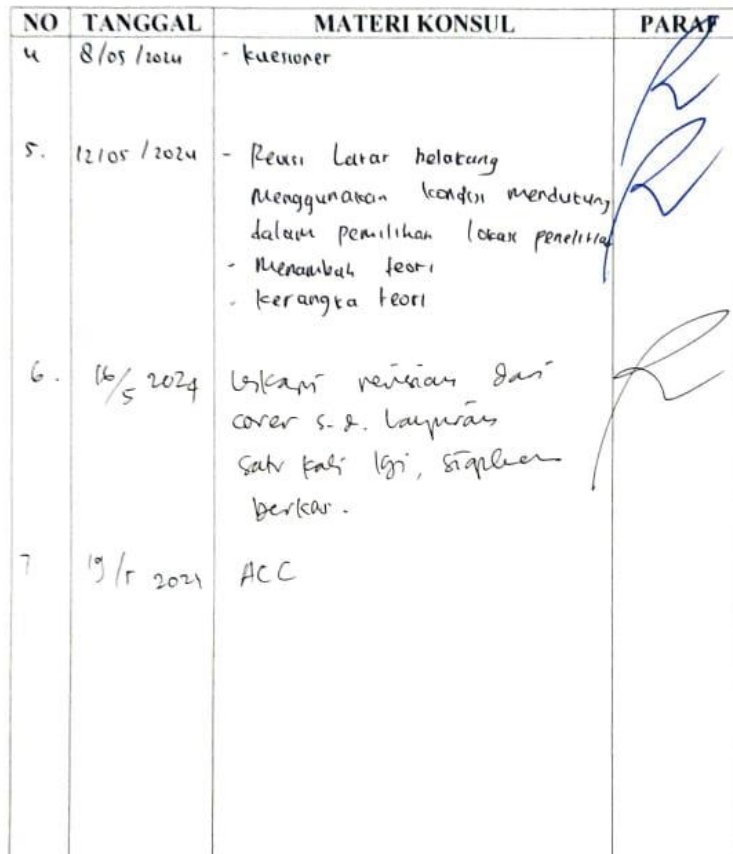 NO TANGGAL MATERI KONSUL PARAF
4 8/05/2024 - kuesioner
5. 12/05/2024 - Revisi Latar belakang
Menggunakan kondisi mendukung
dalam pemilihan lokasi penelitian
- Menambah teori
- kerangka teori
6. 16/5 2024 Lengkapi revisian dari
cover s.d. Lampiran
satu kali lgi, siapkan
berkas.
7 19/5 2024 ACC